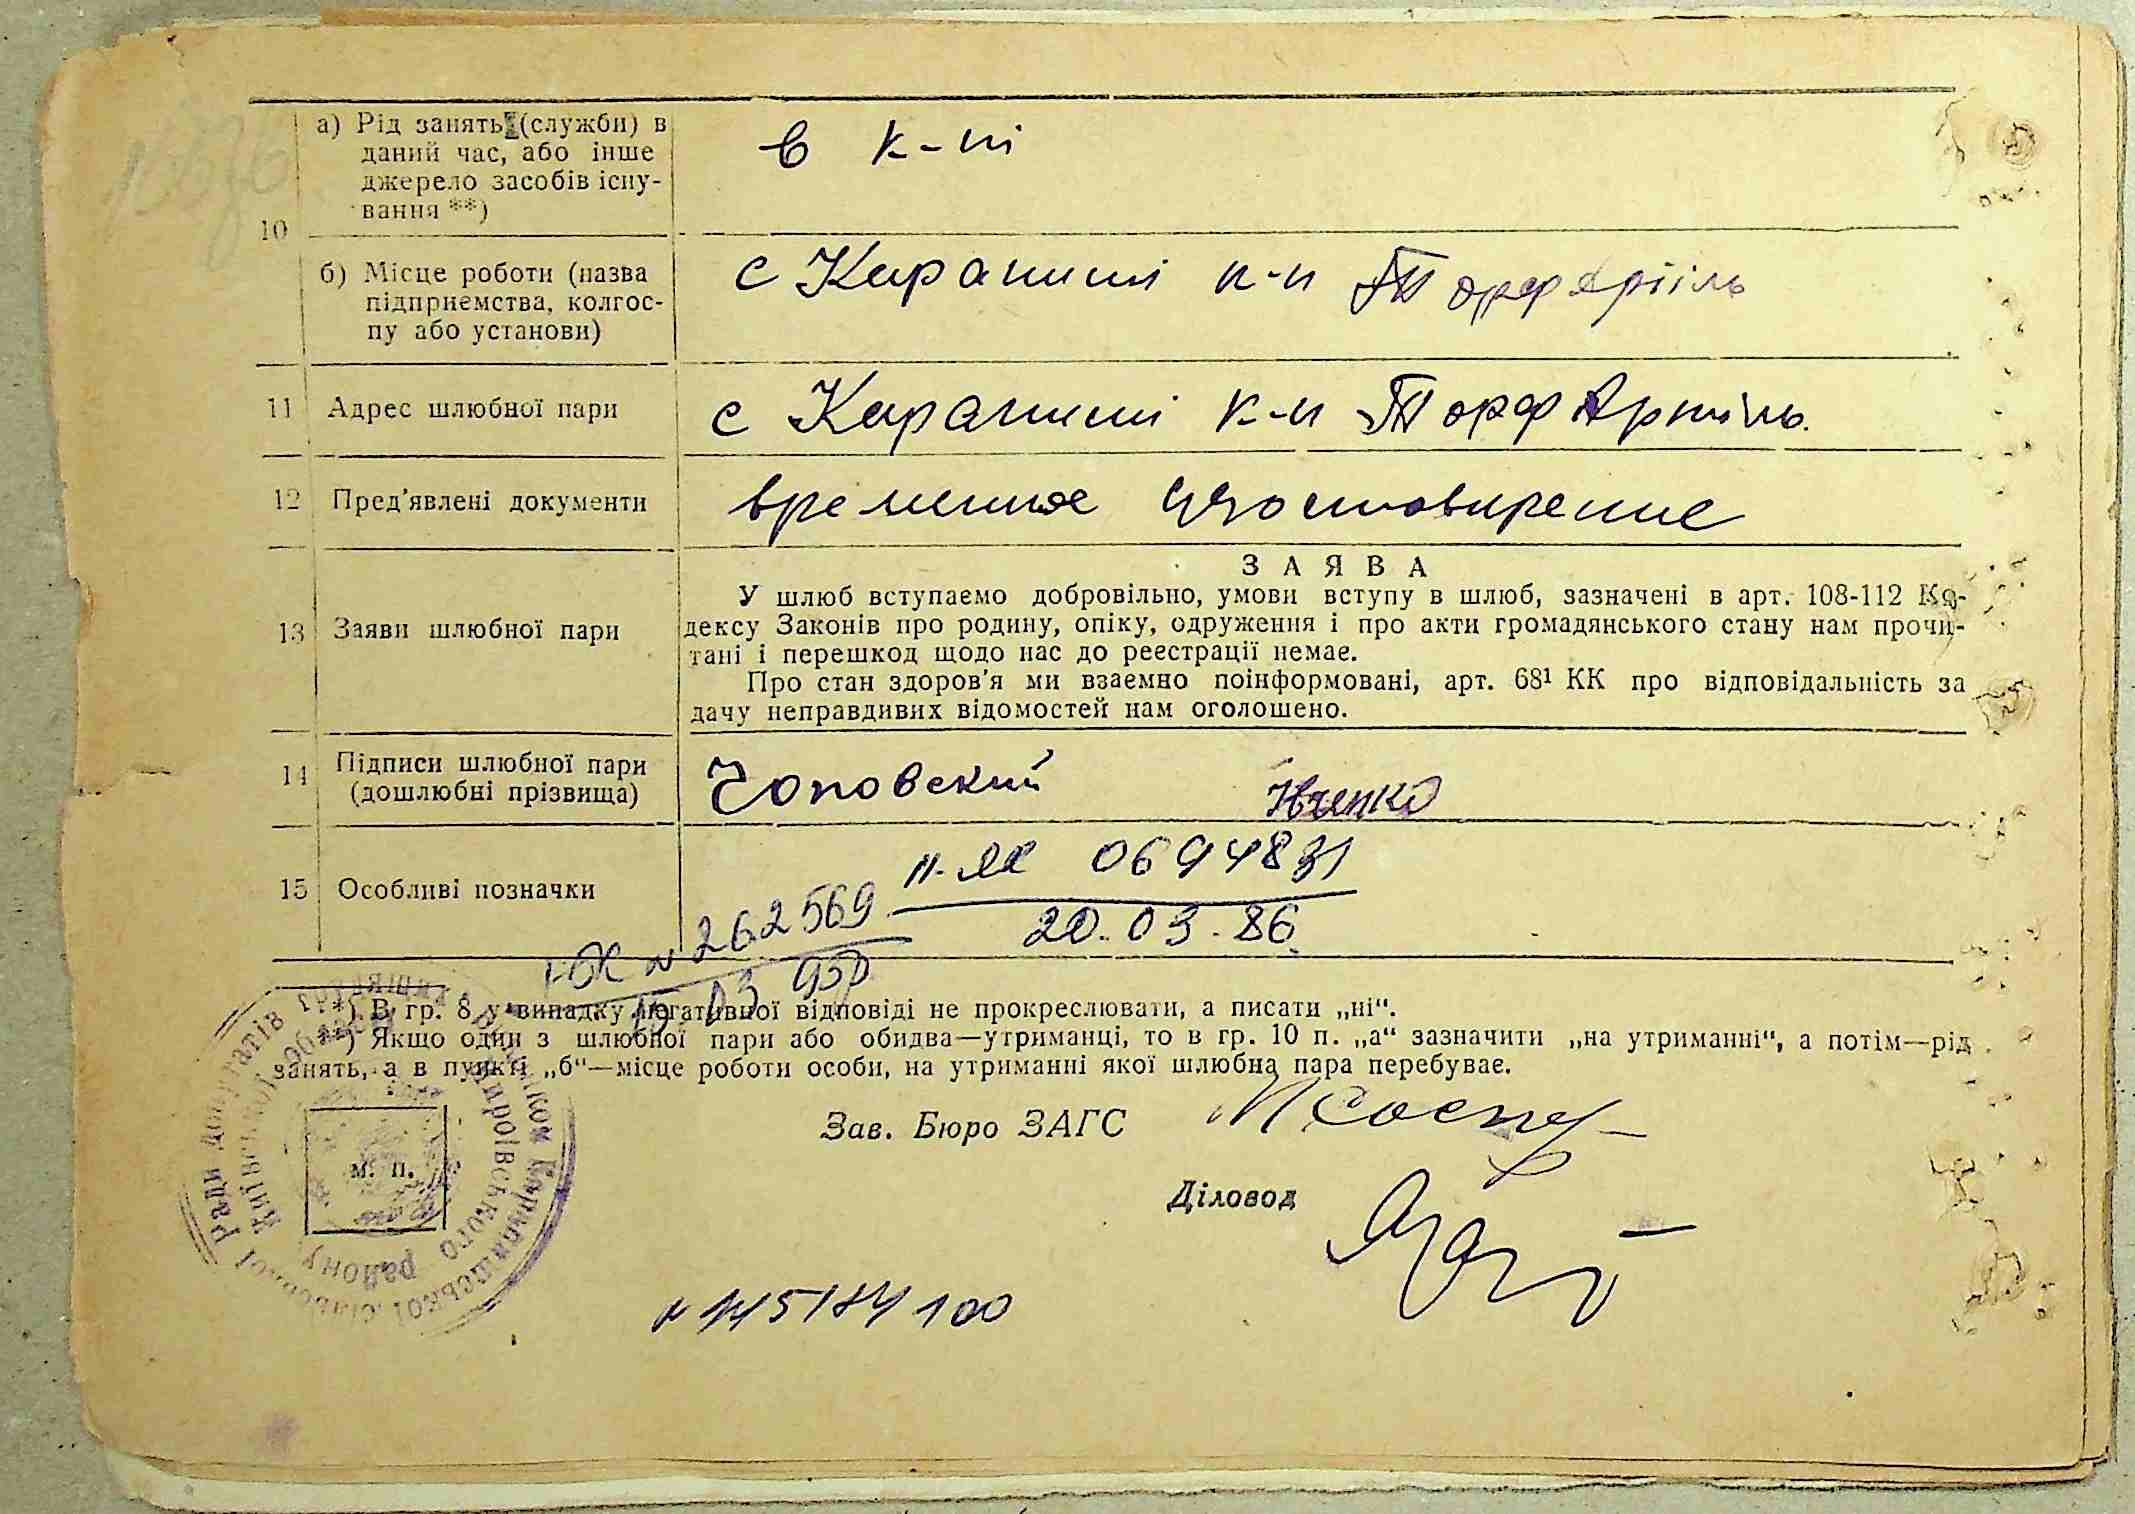 10
а) Рід занять (служби) в
даний час, або інше
джерело засобів існу-
вання **)
в к-ті
б) Місце роботи (назва
підприємства, колгос-
пу або установи)
с Карапиші к-п
11 Адрес шлюбної пари
с Карапиші к-п Торф Артіль.
12 Пред'явлені документи
временное удостовирение
13 Заяви шлюбної пари
ЗАЯВА
У шлюб вступаємо добровільно, умови вступу в шлюб, зазначені в арт. 108-112 Ко-
дексу Законів про родину, опіку, одруження і про акти громадянського стану нам прочи-
тані і перешкод щодо нас до реєстрації немає.
Про стан здоров'я ми взаємно поінформовані, арт. 68¹ КК про відповідальність за
дачу неправдивих відомостей нам оголошено.
14 Підписи шлюбної пари
(дошлюбні прізвища)
Чоповский Івченко
15 Особливі позначки
0694831
20.03.86
N 262569
15 03 95р
*) В гр. 8 у випадку негативної відповіді не прокреслювати, а писати „ні“.
**) Якщо один з шлюбної пари або обидва—утриманці, то в гр. 10 п. „а“ зазначити „на утриманні“, а потім—рід
занять, а в пункті „б“—місце роботи особи, на утриманні якої шлюбна пара перебуває.
Зав. Бюро ЗАГС
Діловод
м. п.
Карапишської сільської Ради депутатів
Миронівського району Київської області